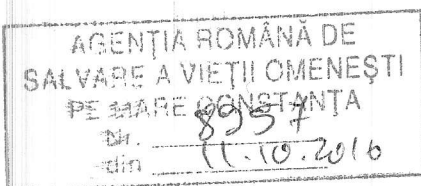 AGENȚIA ROMÂNĂ DE
SALVARE A VIEȚII OMENEȘTI
PE MARE CONSTANȚA
Nr. 8957
din 11.10.2016